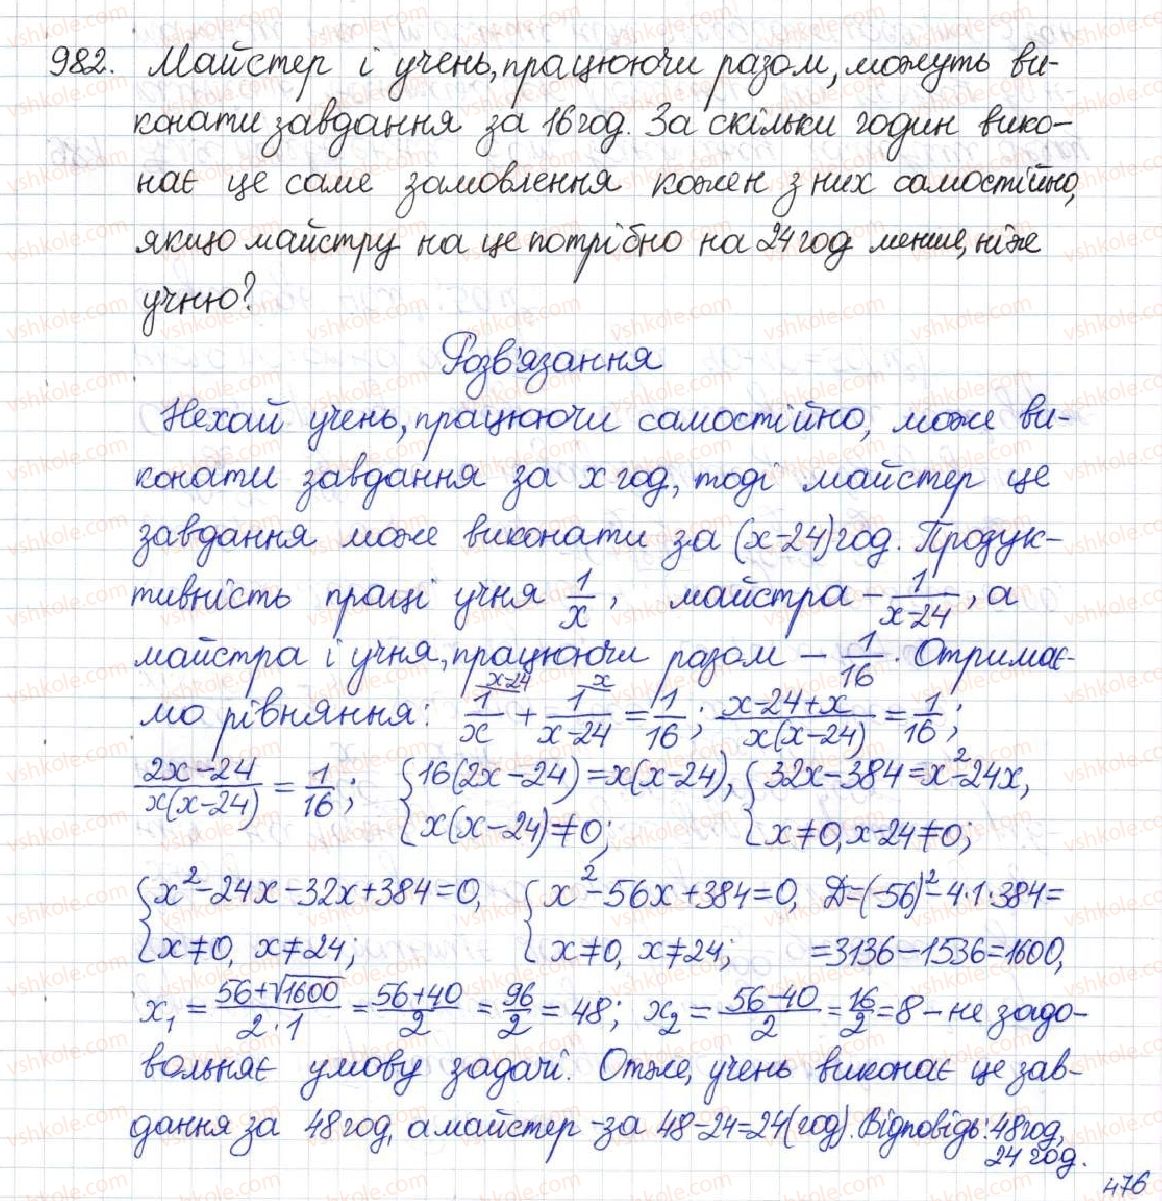 982. Майстер і учень, працюючи разом, можуть ви-
конати завдання за 16 год. За скільки годин вико-
нає це саме замовлення кожен з них самостійно,
якщо майстру на це потрібно на 24 год менше, ніж
учню?
Розв'язання
Нехай учень, працюючи самостійно, може ви-
конати завдання за x год, тоді майстер це
завдання може виконати за (x-24) год. Продук-
тивність праці учня 1/x, майстра - 1/(x-24), а
майстра і учня, працюючи разом - 1/16. Отримає-
мо рівняння: 1/x + 1/(x-24) = 1/16; (x-24+x)/(x(x-24)) = 1/16;
(2x-24)/(x(x-24)) = 1/16; { 16(2x-24)=x(x-24), x(x-24)≠0; { 32x-384=x²-24x, x≠0, x-24≠0;
{ x²-24x-32x+384=0, x≠0, x≠24; { x²-56x+384=0, x≠0, x≠24; D=(-56)²-4·1·384=
=3136-1536=1600,
x₁ = (56+√1600)/(2·1) = (56+40)/2 = 96/2 = 48; x₂ = (56-40)/2 = 16/2 = 8 - не задо-
вольняє умову задачі. Отже, учень виконає це зав-
дання за 48 год, а майстер - за 48-24=24 (год). Відповідь: 48 год,
24 год.
476